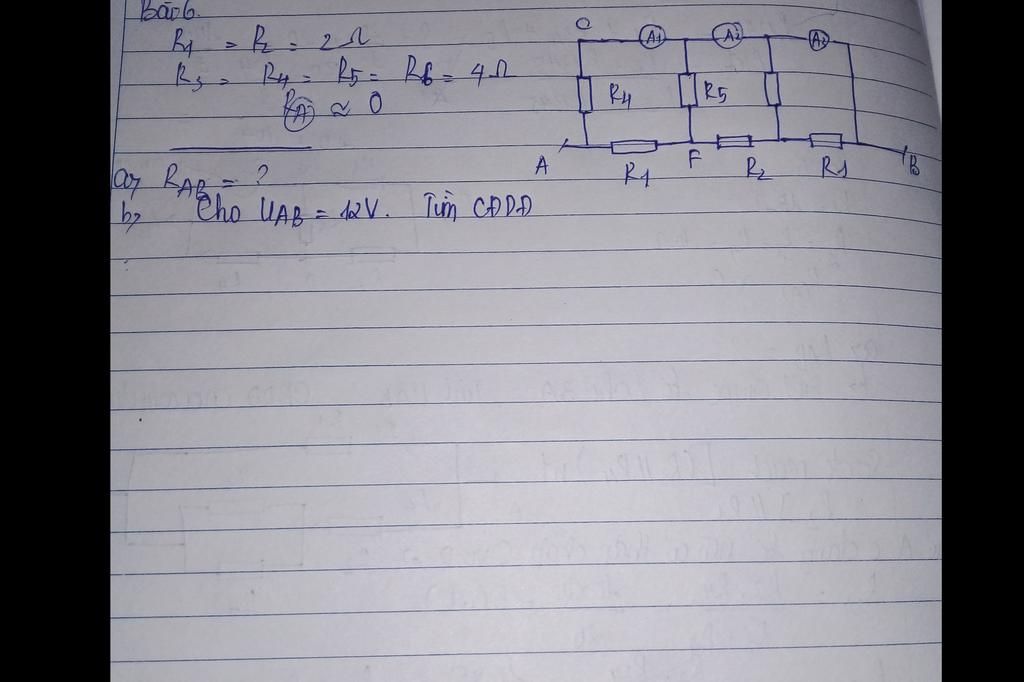 Bài 6.
R1 = R2 = 2 Ω
R3 = R4 = R5 = R6 = 4 Ω
RA ≈ 0
a, RAB = ?
b, Cho UAB = 12V. Tìm CĐDĐ
C
A1
A2
A3
R4
R5
A
R1
F
R2
R3
B